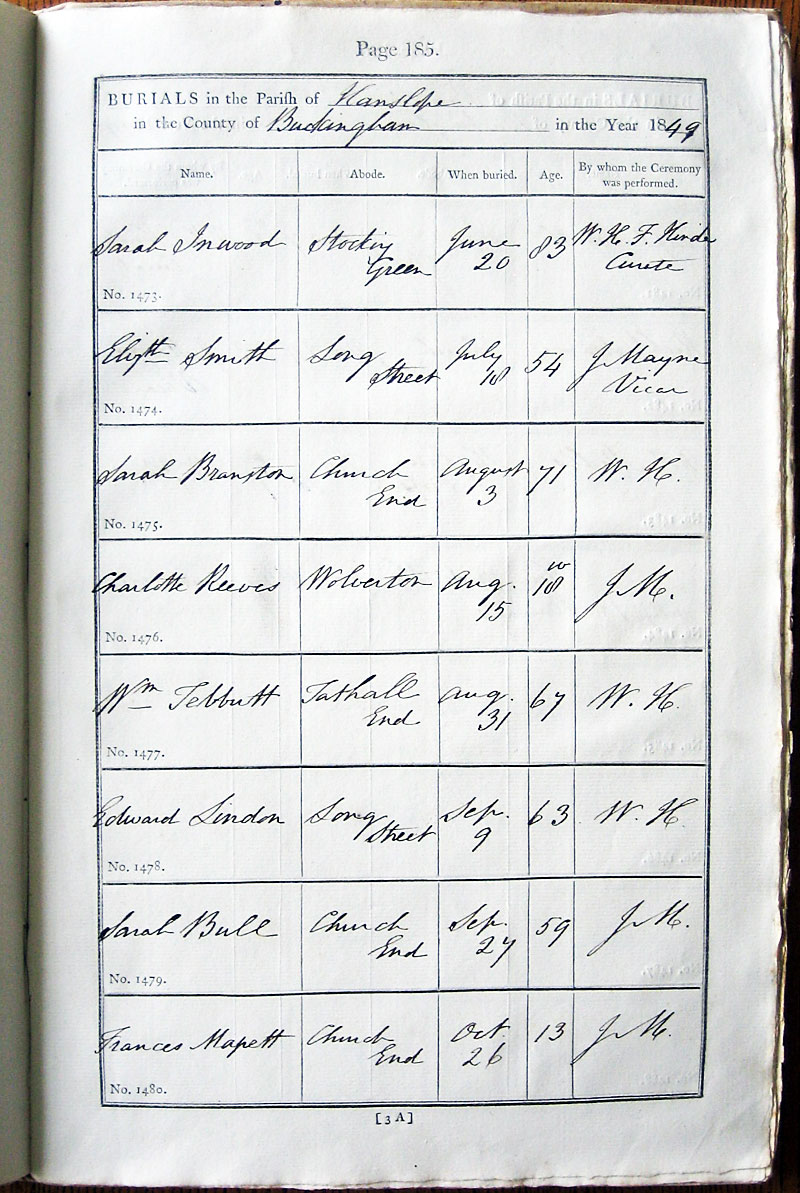 Page 185.
BURIALS in the Parish of Hanslope
in the County of Buckingham in the Year 1849
Name. Abode. When buried. Age. By whom the Ceremony was performed.
Sarah Inwood Stocking June 83 W. H. F. Hinde
Green 20 Curate
No. 1473.
Elizth Smith Long July 54 J Mayne
Street 18 Vicar
No. 1474.
Sarah Branston Church August 71 W. H.
End 3
No. 1475.
Charlotte Reeves Wolverton Aug. 18 w J. M.
15
No. 1476.
Wm Tebbutt Tathall Aug. 67 W. H.
End 31
No. 1477.
Edward Lindon Long Sep. 63 W. H.
Street 9
No. 1478.
Sarah Bull Church Sep. 59 J. M.
End 27
No. 1479.
Frances Mapett Church Oct. 13 J. M.
End 26
No. 1480.
[3A]